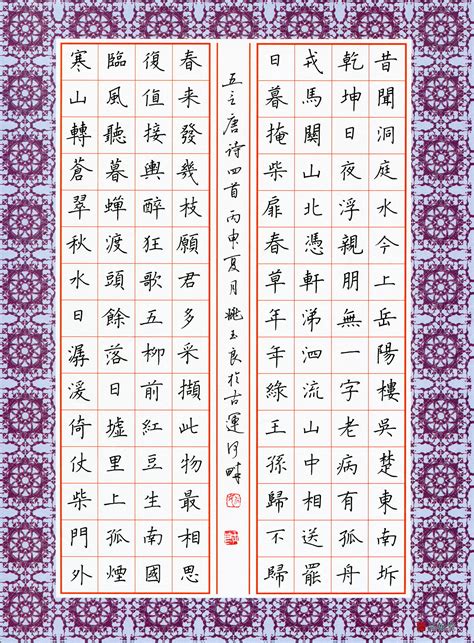 昔聞洞庭水今上岳陽樓吳楚東南坼
乾坤日夜浮親朋無一字老病有孤舟
戎馬關山北憑軒涕泗流山中相送罷
日暮掩柴扉春草年年綠王孫歸不歸
寒山轉蒼翠秋水日潺湲倚仗柴門外
臨風聽暮蟬渡頭餘落日墟里上孤煙
復值接輿醉狂歌五柳前紅豆生南國
春來發幾枝願君多采擷此物最相思
五言唐诗四首丙申夏月姚玉良於古運河畔